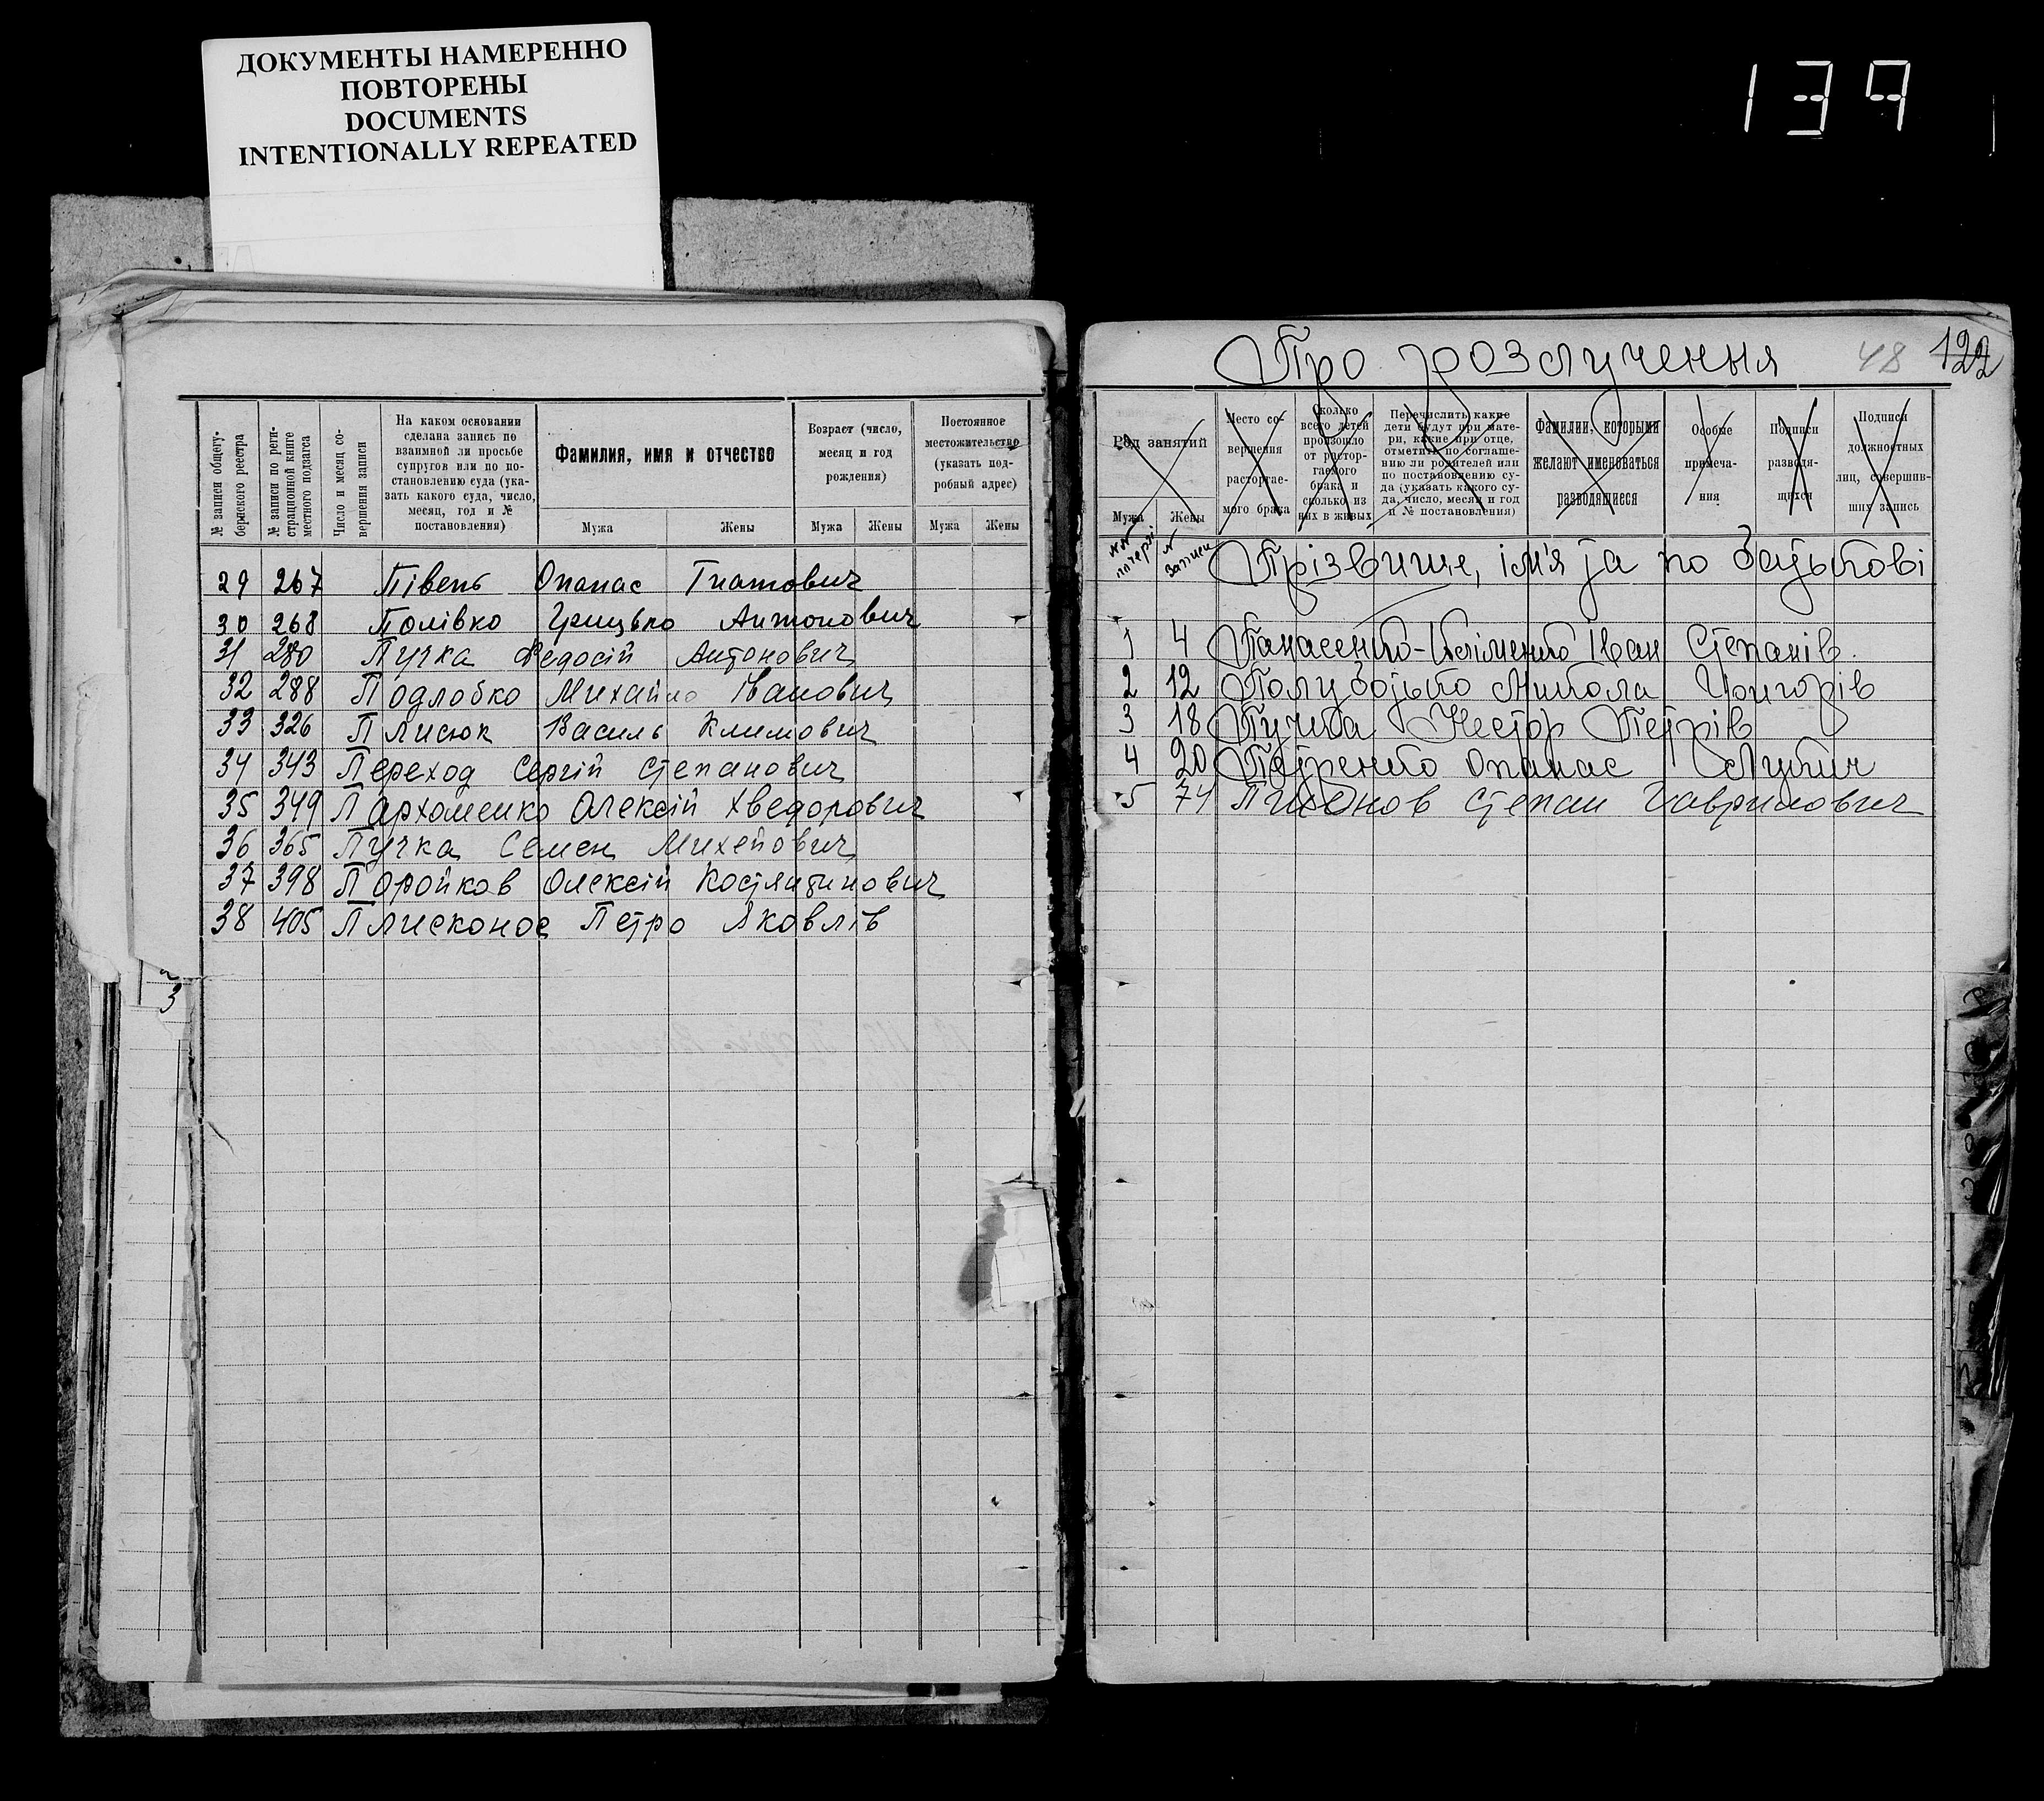 ДОКУМЕНТЫ НАМЕРЕННО
ПОВТОРЕНЫ
DOCUMENTS
INTENTIONALLY REPEATED
139
№ записи общегу-
бернского реестра
№ записи по реги-
страционной книге
местного подзагса
Число и месяц со-
вершения записи
На каком основании
сделана запись по
взаимной ли просьбе
супругов или по по-
становлению суда (ука-
зать какого суда, число,
месяц, год и №
постановления)
Фамилия, имя и отчество
Мужа Жены
Возраст (число,
месяц и год
рождения)
Мужа Жены
Постоянное
местожительство
(указать под-
робный адрес)
Мужа Жены
29 267 Півень Опанас Гнатович
30 268 Полівко Грицько Антонович
31 280 Пучка Федосій Антонович
32 288 Подлобко Михайло Іванович
33 326 Плисюк Василь Климович
34 343 Переход Сергій Степанович
35 349 Пархоменко Олексій Хведорович
36 365 Пучка Семен Михейович
37 398 Поройков Олексій Костянтинович
38 405 Плисконос Петро Яковлів
3
Про розлучення 48 122
Род занятий
Мужа Жены
Место со-
вершения
расторгае-
мого брака
Сколько
всего детей
произошло
от растор-
гаемого
брака и
сколько из
них в живых
Перечислить какие
дети будут при мате-
ри, какие при отце,
отметить по соглаше-
нию ли родителей или
по постановлению су-
да (указать какого су-
да, число, месяц и год
и № постановления)
Фамилии, которыми
желают именоваться
разводящиеся
Особые
примеча-
ния
Подписи
разводя-
щихся
Подписи
должностных
лиц, совершив-
ших запись
№ записи Прізвище, ім'я та по батькові
1 4 Панасенко-Кліменко Іван Степанів.
2 12 Полуботько Микола Григорів
3 18 Пучка Нестор Петрів
4 20 Петренко Опанас Лукич
5 74 Пихонов Степан Гаврилович